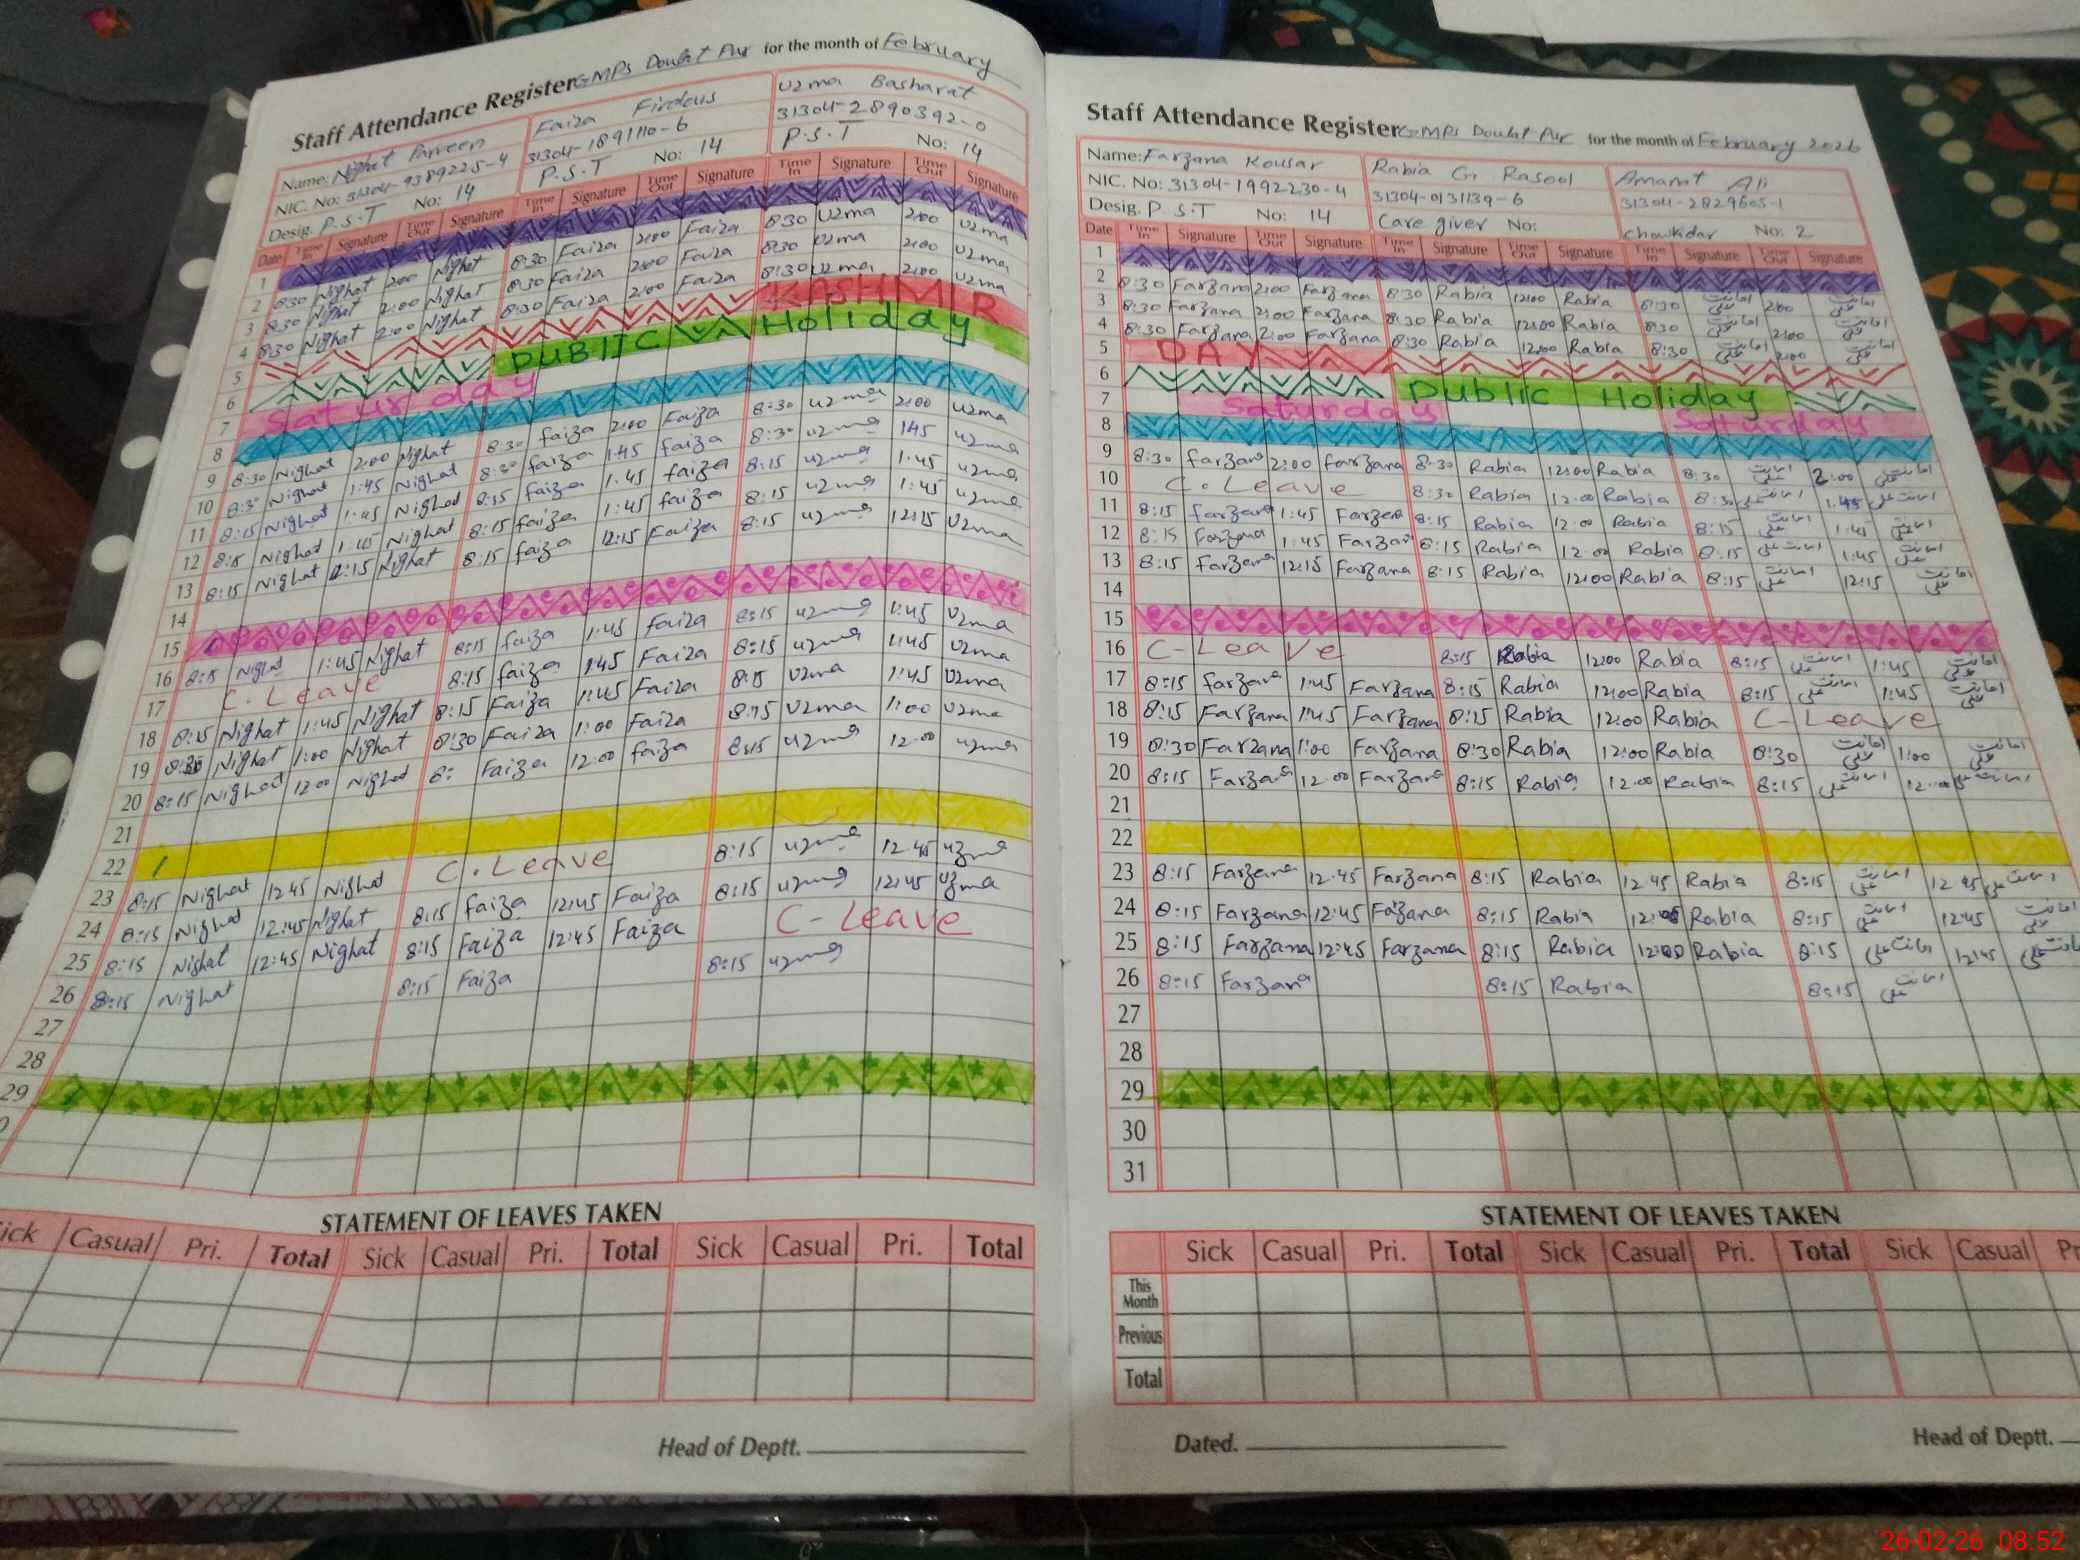 Staff Attendance Register GMPS Doulat Pur for the month of February
Name: Nighat Parveen
NIC. No: 31304-9389225-4
Desig. P.S.T No: 14
Faiza Firdous
31304-1891110-6
P.S.T No: 14
Uzma Basharat
31304-2890392-0
P.S.T No: 14
Date Time In Signature Time Out Signature Time In Signature Time Out Signature Time In Signature Time Out Signature
1
2 8:30 Nighat 2:00 Nighat 8:30 Faiza 2:00 Faiza 8:30 Uzma 2:00 Uzma
3 8:30 Nighat 2:00 Nighat 8:30 Faiza 2:00 Faiza 8:30 Uzma 2:00 Uzma
4 8:30 Nighat 2:00 Nighat 8:30 Faiza 2:00 Faiza 8:30 Uzma 2:00 Uzma
5 KASHMIR
6 PUBLIC Holiday
7 Saturday
8
9 8:30 Nighat 2:00 Nighat 8:30 faiza 2:00 Faiza 8:30 uzma 2:00 uzma
10 8:30 Nighat 1:45 Nighat 8:30 faiza 1:45 faiza 8:30 uzma 1:45 uzma
11 8:15 Nighat 1:45 Nighat 8:15 faiza 1:45 faiza 8:15 uzma 1:45 uzma
12 8:15 Nighat 1:45 Nighat 8:15 faiza 1:45 faiza 8:15 uzma 1:45 uzma
13 8:15 Nighat 12:15 Nighat 8:15 faiza 12:15 Faiza 8:15 uzma 12:15 Uzma
14
15
16 8:15 Night 1:45 Nighat 8:15 faiza 1:45 Faiza 8:15 uzma 1:45 Uzma
17 C. Leave 8:15 faiza 1:45 Faiza 8:15 uzma 1:45 Uzma
18 8:15 Nighat 1:45 Nighat 8:15 Faiza 1:45 Faiza 8:15 Uzma 1:45 Uzma
19 8:30 Nighat 1:00 Nighat 8:30 Faiza 1:00 Faiza 8:15 Uzma 1:00 Uzma
20 8:15 Nighat 12:00 Nighat 8: Faiza 12:00 faiza 8:15 uzma 12:00 uzma
21
22
23 8:15 Nighat 12:45 Nighat C. Leave 8:15 uzma 12:45 uzma
24 8:15 Nighat 12:45 Nighat 8:15 faiza 12:45 Faiza 8:15 uzma 12:45 uzma
25 8:15 Nighat 12:45 Nighat 8:15 Faiza 12:45 Faiza C-Leave
26 8:15 Nighat 8:15 Faiza 8:15 uzma
27
28
29
STATEMENT OF LEAVES TAKEN
Casual Pri. Total Sick Casual Pri. Total Sick Casual Pri. Total
Head of Deptt.
Staff Attendance Register GMPS Doulat Pur for the month of February 2026
Name: Farzana Kousar
NIC. No: 31304-1992230-4
Desig. P.S.T No: 14
Rabia G. Rasool
31304-0131139-6
Care giver No:
Amanat Ali
31304-2829605-1
Chowkidar No: 2
Date Time In Signature Time Out Signature Time In Signature Time Out Signature Time In Signature Time Out Signature
1
2 8:30 Farzana 2:00 Farzana 8:30 Rabia 12:00 Rabia 8:30 امانت علی 2:00 امانت علی
3 8:30 Farzana 2:00 Farzana 8:30 Rabia 12:00 Rabia 8:30 امانت علی 2:00 امانت علی
4 8:30 Farzana 2:00 Farzana 8:30 Rabia 12:00 Rabia 8:30 امانت علی 2:00 امانت علی
5 DAY
6
7 Public Holiday
8 Saturday Saturday
9 8:30 farzana 2:00 farzana 8:30 Rabia 12:00 Rabia 8:30 امانت علی 2:00 امانت علی
10 C. Leave 8:30 Rabia 12:00 Rabia 8:30 امانت علی 1:45 امانت علی
11 8:15 farzana 1:45 Farzana 8:15 Rabia 12:00 Rabia 8:15 امانت علی 1:45 امانت علی
12 8:15 farzana 1:45 Farzana 8:15 Rabia 12:00 Rabia 8:15 امانت علی 1:45 امانت علی
13 8:15 farzana 12:15 Farzana 8:15 Rabia 12:00 Rabia 8:15 امانت علی 12:15 امانت علی
14
15
16 C-Leave 8:15 Rabia 12:00 Rabia 8:15 امانت علی 1:45 امانت علی
17 8:15 farzana 1:45 Farzana 8:15 Rabia 12:00 Rabia 8:15 امانت علی 1:45 امانت علی
18 8:15 Farzana 1:45 Farzana 8:15 Rabia 12:00 Rabia C-Leave
19 8:30 Farzana 1:00 Farzana 8:30 Rabia 12:00 Rabia 8:30 امانت علی 1:00 امانت علی
20 8:15 Farzana 12:00 Farzana 8:15 Rabia 12:00 Rabia 8:15 امانت علی 12:00 امانت علی
21
22
23 8:15 Farzana 12:45 Farzana 8:15 Rabia 12:45 Rabia 8:15 امانت علی 12:45 امانت علی
24 8:15 Farzana 12:45 Fazana 8:15 Rabia 12:00 Rabia 8:15 امانت علی 12:45 امانت علی
25 8:15 Farzana 12:45 Farzana 8:15 Rabia 12:00 Rabia 8:15 امانت علی 12:45 امانت علی
26 8:15 Farzana 8:15 Rabia 8:15 امانت علی
27
28
29
30
31
STATEMENT OF LEAVES TAKEN
Sick Casual Pri. Total Sick Casual Pri. Total Sick Casual
This Month
Previous
Total
Dated.
Head of Deptt.
26-02-26 08:52